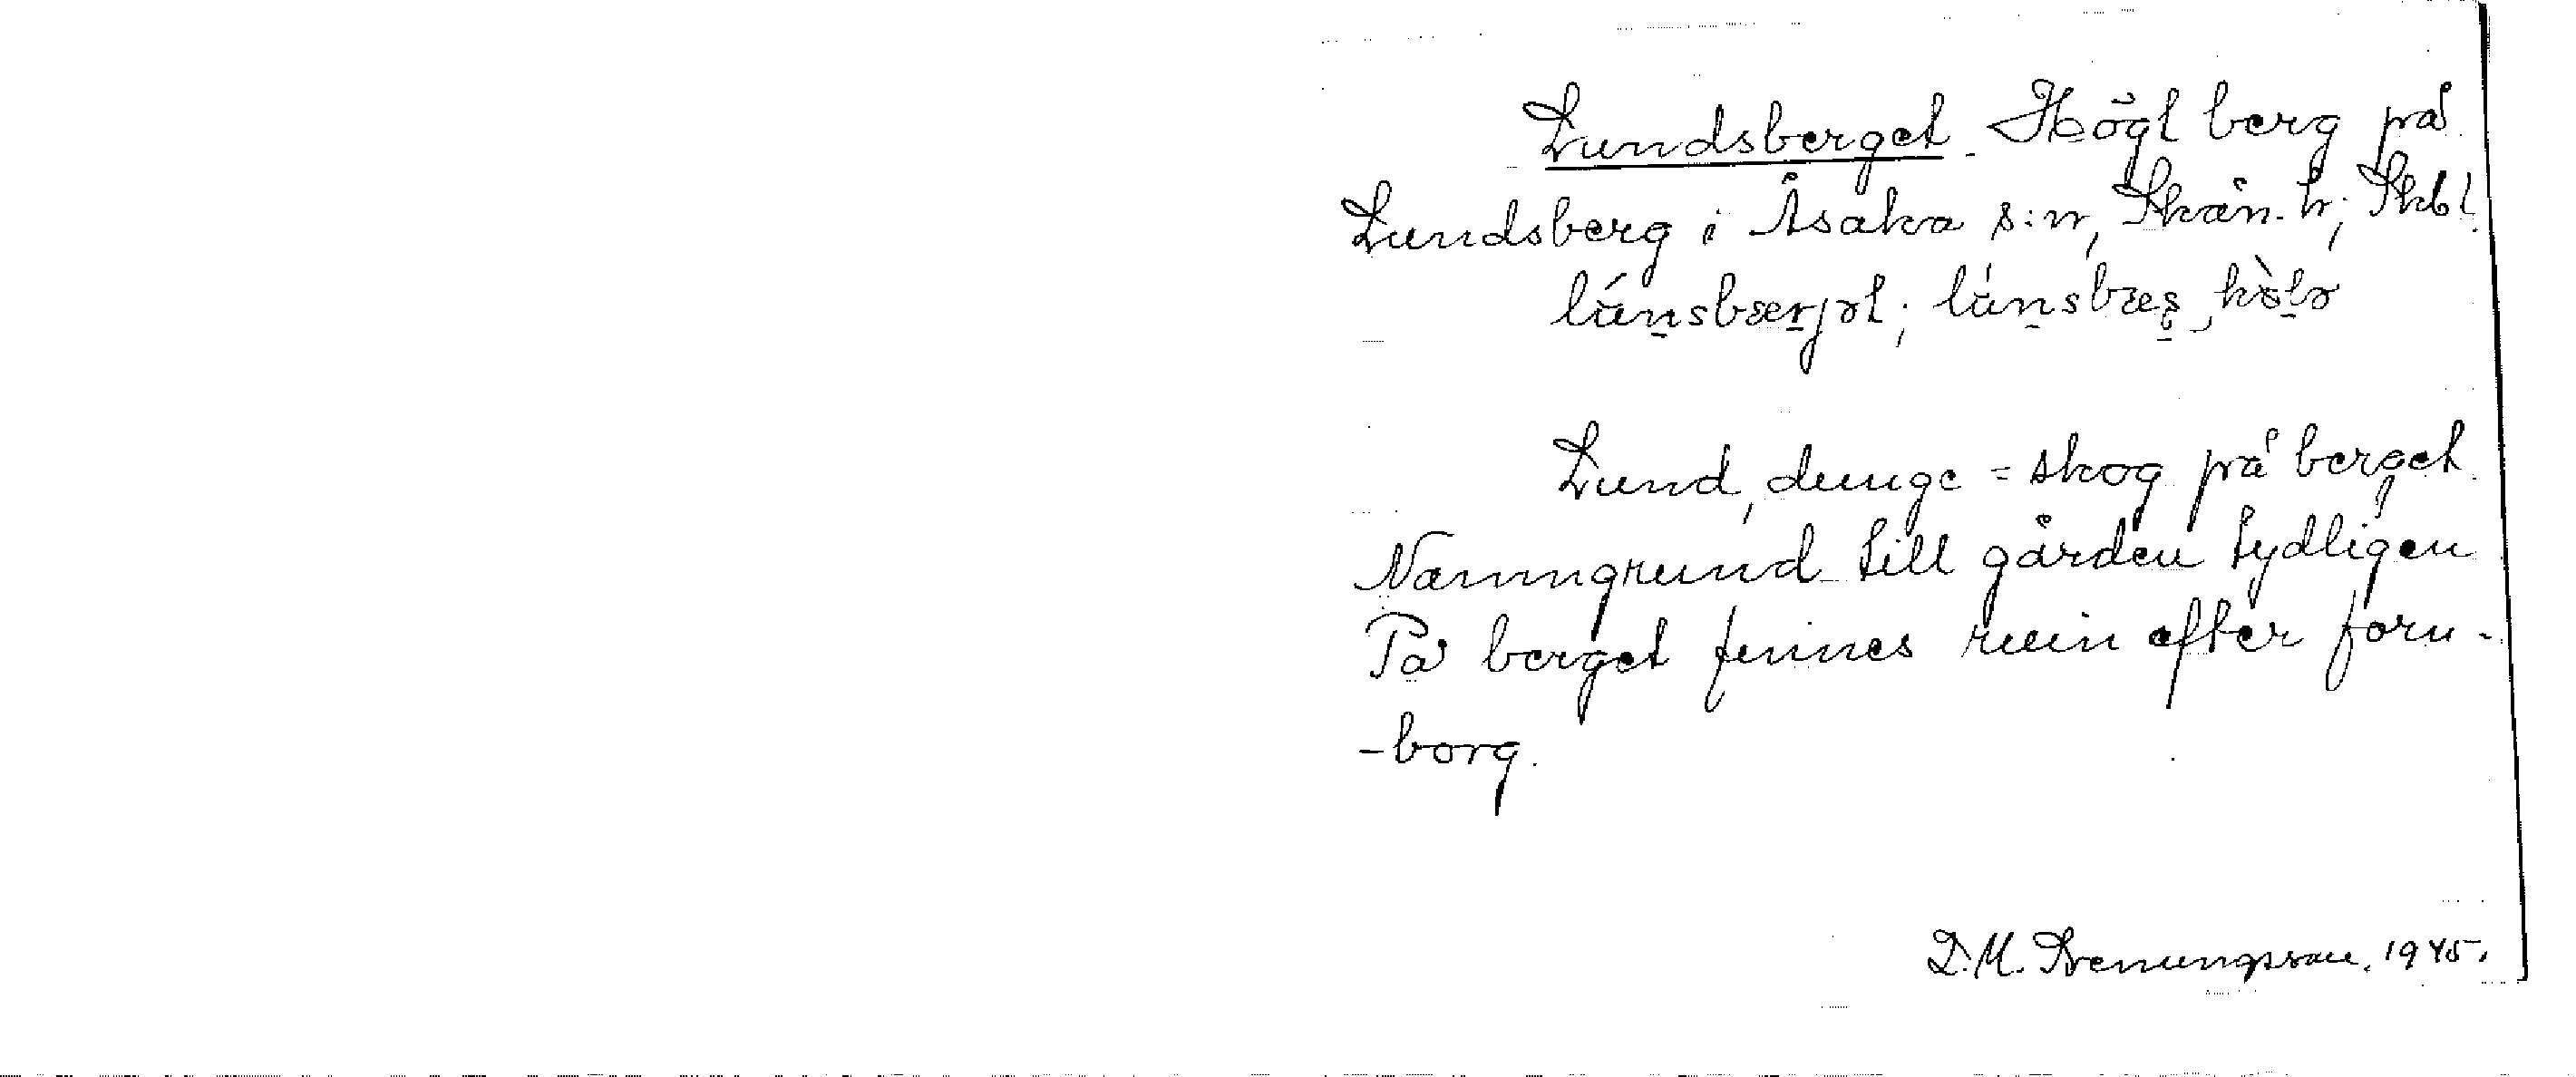 Lundsberget. Högt berg på
Lundsberg i Åsaka s:n, Skån. h; Skbl.
lúnsbærjət; lúnsbæs kòlə
Lund, dunge = skog på berget.
Namngrund till gården tydligen
På berget finnes ruin efter forn-
-borg.
D. M. 1945.